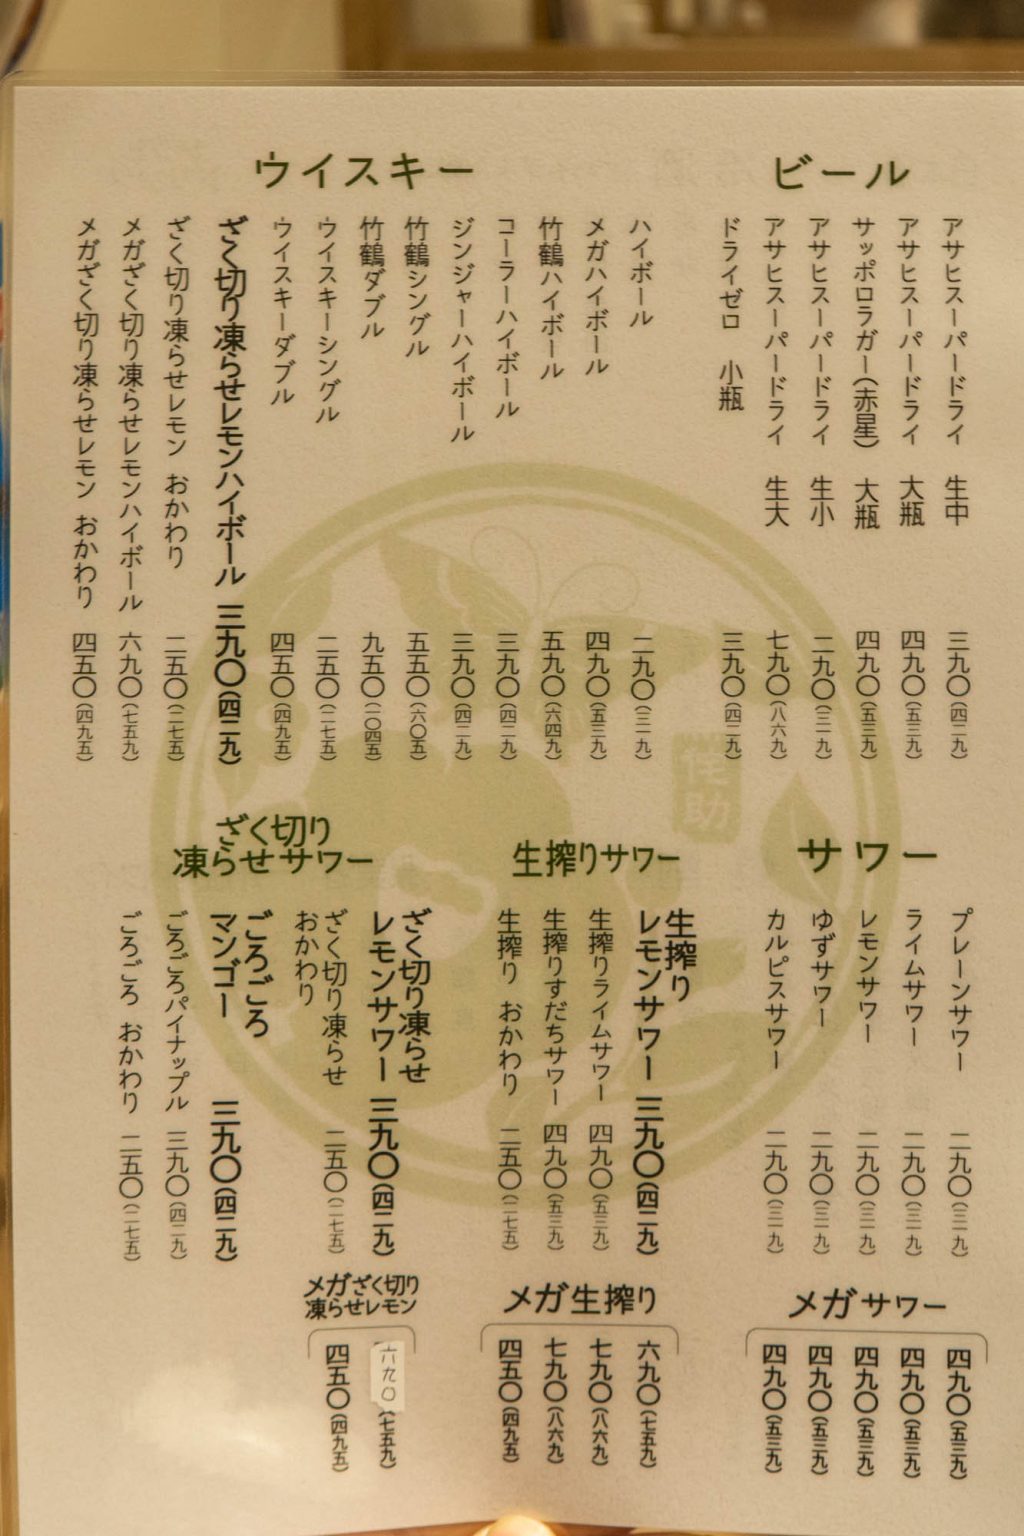 ビール
アサヒスーパードライ 生中 三九〇(四二九)
アサヒスーパードライ 大瓶 四九〇(五三九)
サッポロラガー(赤星) 大瓶 四九〇(五三九)
アサヒスーパードライ 生小 二九〇(三一九)
アサヒスーパードライ 生大 七九〇(八六九)
ドライゼロ 小瓶 三九〇(四二九)
ウイスキー
ハイボール 二九〇(三一九)
メガハイボール 四九〇(五三九)
竹鶴ハイボール 五九〇(六四九)
コーラーハイボール 三九〇(四二九)
ジンジャーハイボール 三九〇(四二九)
竹鶴シングル 五五〇(六〇五)
竹鶴ダブル 九五〇(一〇四五)
ウイスキーシングル 二五〇(二七五)
ウイスキーダブル 四五〇(四九五)
ざく切り凍らせレモンハイボール 三九〇(四二九)
ざく切り凍らせレモン おかわり 二五〇(二七五)
メガざく切り凍らせレモンハイボール 六九〇(七五九)
メガざく切り凍らせレモン おかわり 四五〇(四九五)
佯助
サワー
プレーンサワー 二九〇(三一九)
ライムサワー 二九〇(三一九)
レモンサワー 二九〇(三一九)
ゆずサワー 二九〇(三一九)
カルピスサワー 二九〇(三一九)
メガサワー
四九〇(五三九)
四九〇(五三九)
四九〇(五三九)
四九〇(五三九)
四九〇(五三九)
生搾りサワー
生搾り
レモンサワー 三九〇(四二九)
生搾りライムサワー 四九〇(五三九)
生搾りすだちサワー 四九〇(五三九)
生搾り おかわり 二五〇(二七五)
メガ生搾り
六九〇(七五九)
七九〇(八六九)
七九〇(八六九)
四五〇(四九五)
ざく切り
凍らせサワー
ざく切り凍らせ
レモンサワー 三九〇(四二九)
ざく切り凍らせ
おかわり 二五〇(二七五)
ごろごろ
マンゴー 三九〇(四二九)
ごろごろパイナップル 三九〇(四二九)
ごろごろ おかわり 二五〇(二七五)
メガざく切り
凍らせレモン
六九〇(七五九)
四五〇(四九五)